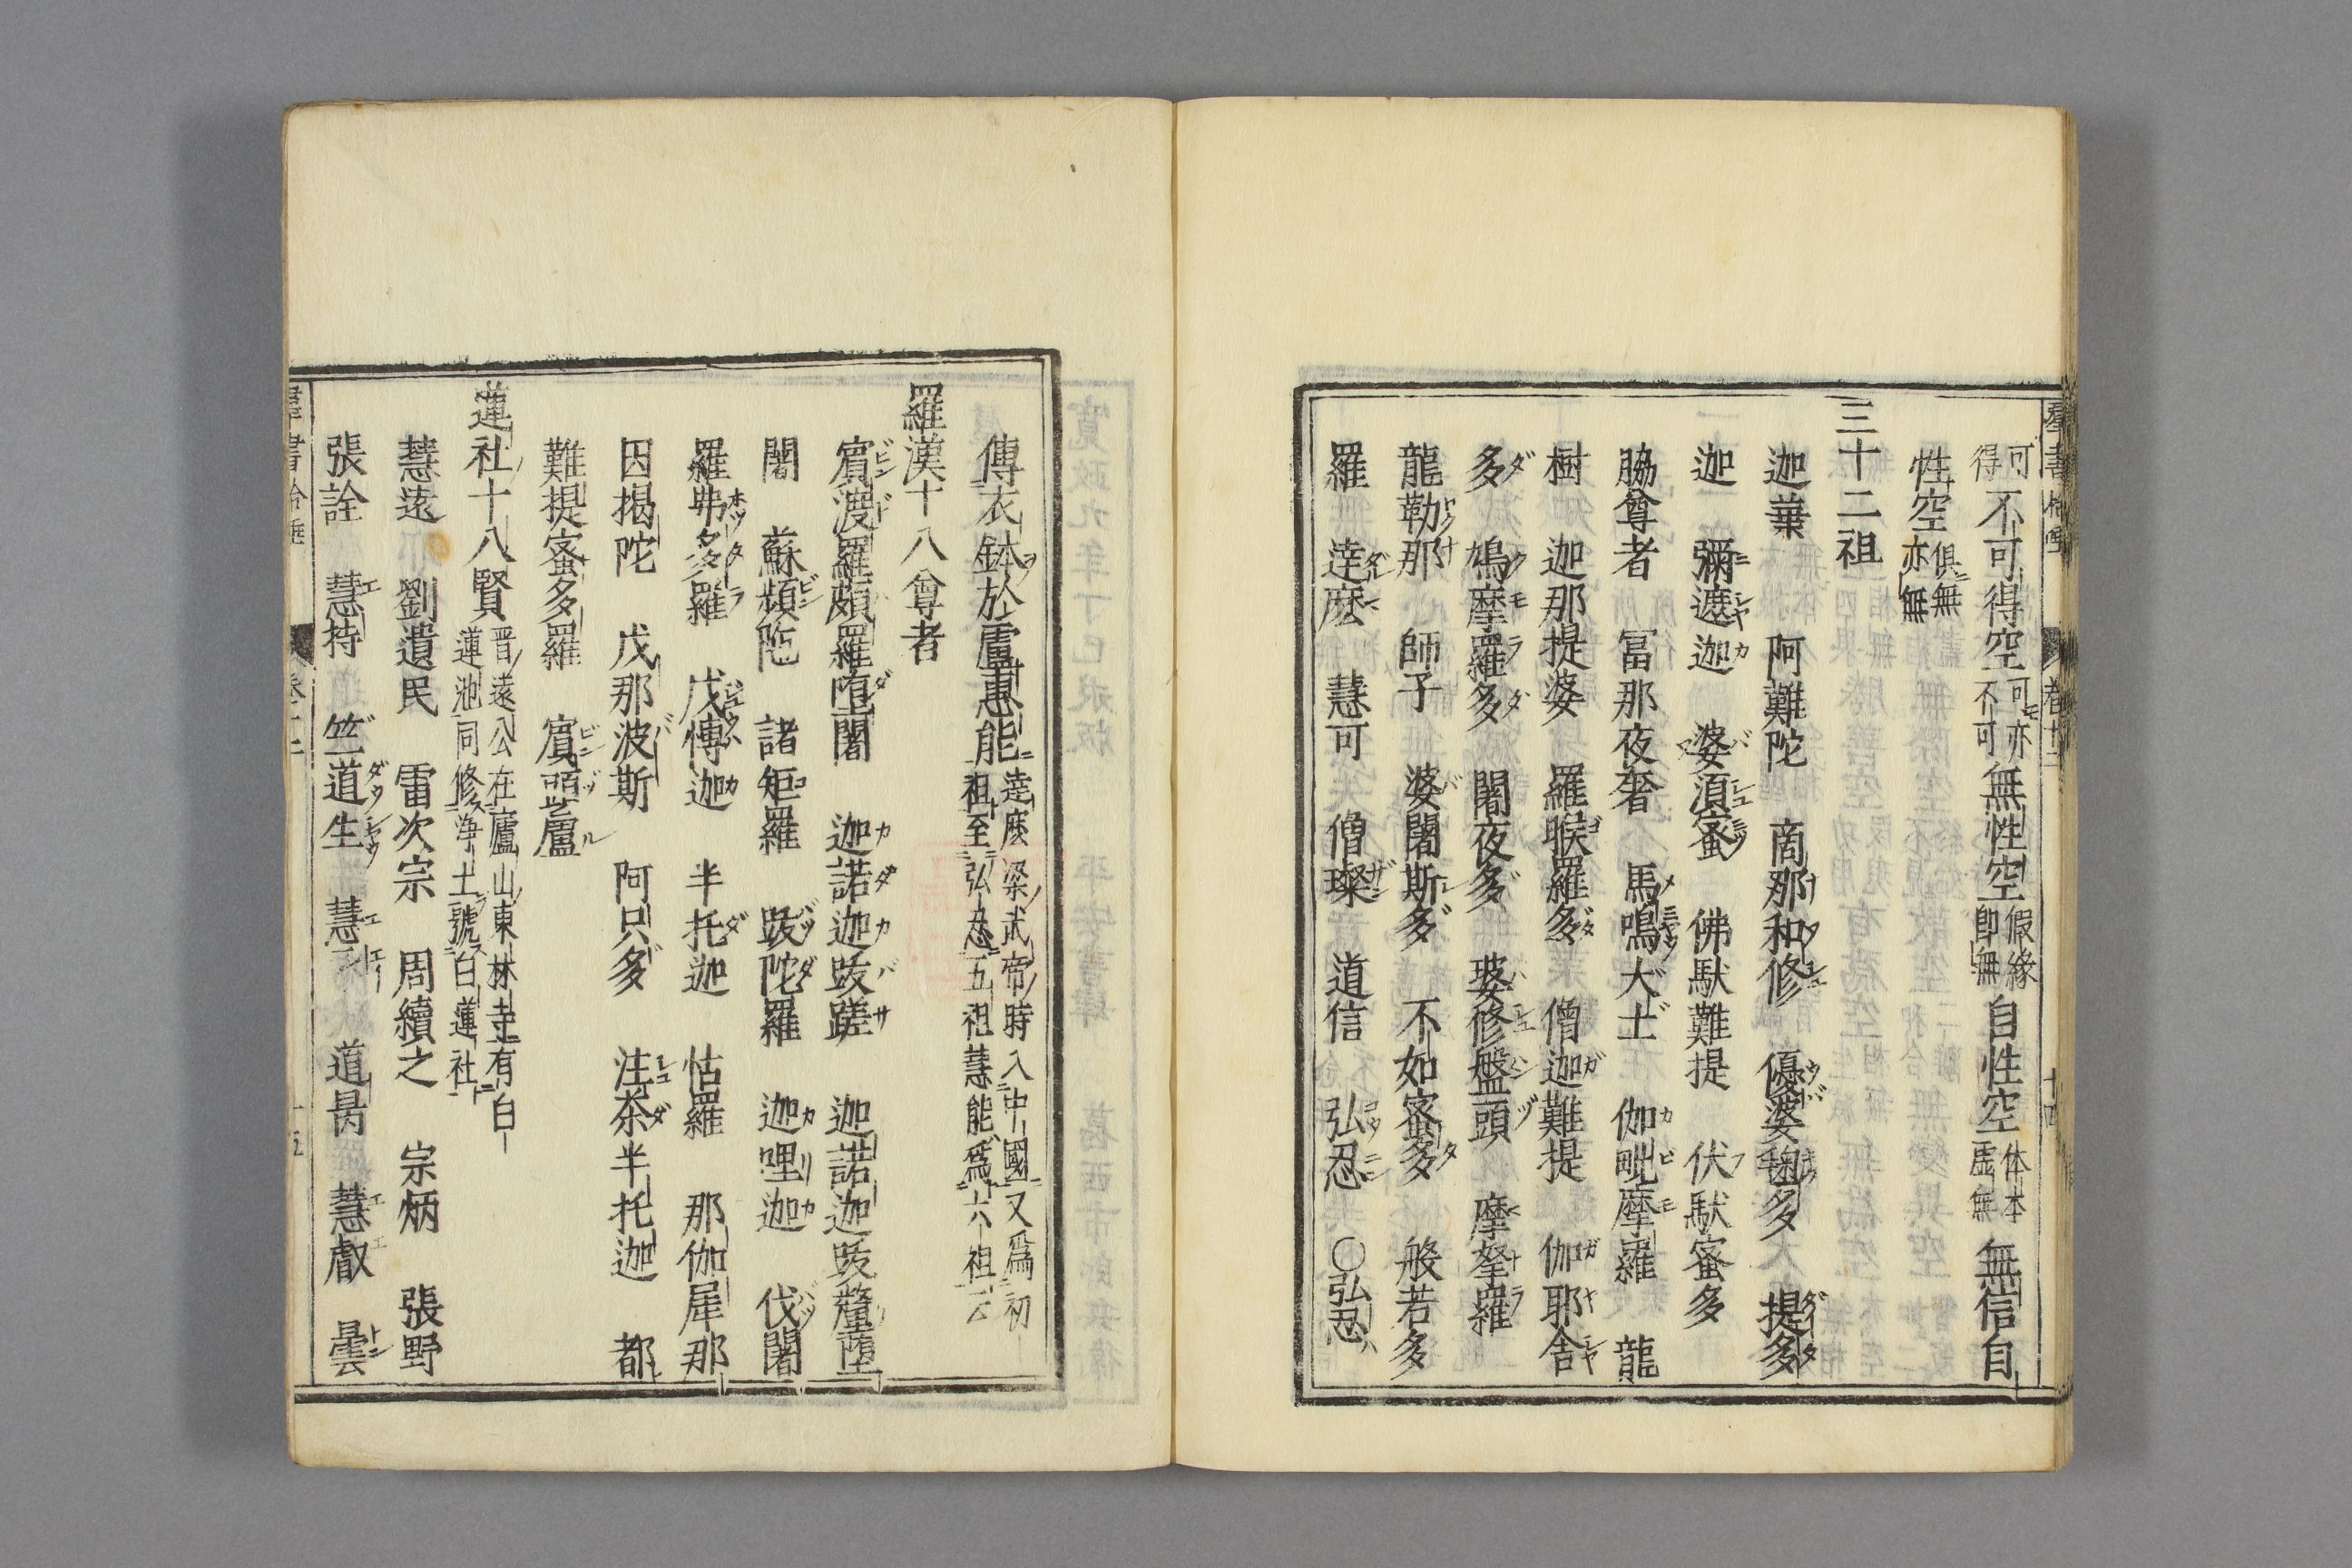 可得 不可得空 可亦不可 無性空 假緣即無 自性空 体本虚無 無信自
性空 俱無亦無
三十二祖
迦葉 阿難陀 商那和修 優婆毱多 提多
迦 彌遮迦 婆須蜜 佛馱難提 伏馱蜜多
脇尊者 冨那夜奢 馬鳴大士 伽毗摩羅 龍
樹 迦那提婆 羅睺羅多 僧迦難提 伽耶舎
多 鳩摩羅多 闍夜多 婆修盤頭 摩拏羅
龍勒那 師子 婆闍斯多 不如蜜多 般若多
羅 達麼 慧可 僧璨 道信 弘忍 〇弘忍
傳衣鉢於盧惠能 達麼梁武帝時入中國又爲初祖至弘忍五祖慧能爲六祖云
羅漢十八尊者
賓渡羅頗羅堕闍 迦諾迦跋蹉 迦諾迦跋釐堕
闍 蘇頻陁 諸矩羅 跋陀羅 迦哩迦 伐闍
羅弗多羅 戊愽迦 半托迦 怙羅 那伽犀那
因揭陀 戊那波斯 阿只多 注荼半托迦 都
難提蜜多羅 賓頭盧
蓮社十八賢 晋遠公在廬山東林寺有白蓮池同修浄土號白蓮社
慧遠 劉遺民 雷次宗 周續之 宗炳 張野
張詮 慧持 竺道生 慧永 道昺 慧叡 曇